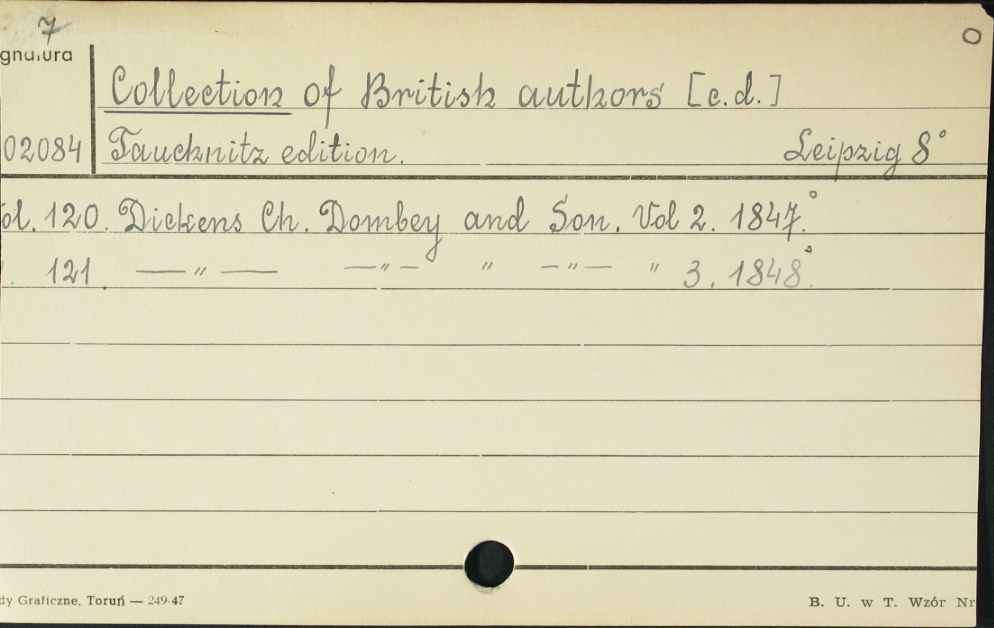 7 O
gnatura
Collection of British authors [c.d.]
02084 Tauchnitz edition. Leipzig 8°
ol. 120. Dickens Ch. Dombey and Son. Vol 2. 1847.°
121. —〃— —〃— 〃 —〃— 〃 3. 1848.°
dy Graficzne, Toruń — 249-47
B. U. w T. Wzór Nr